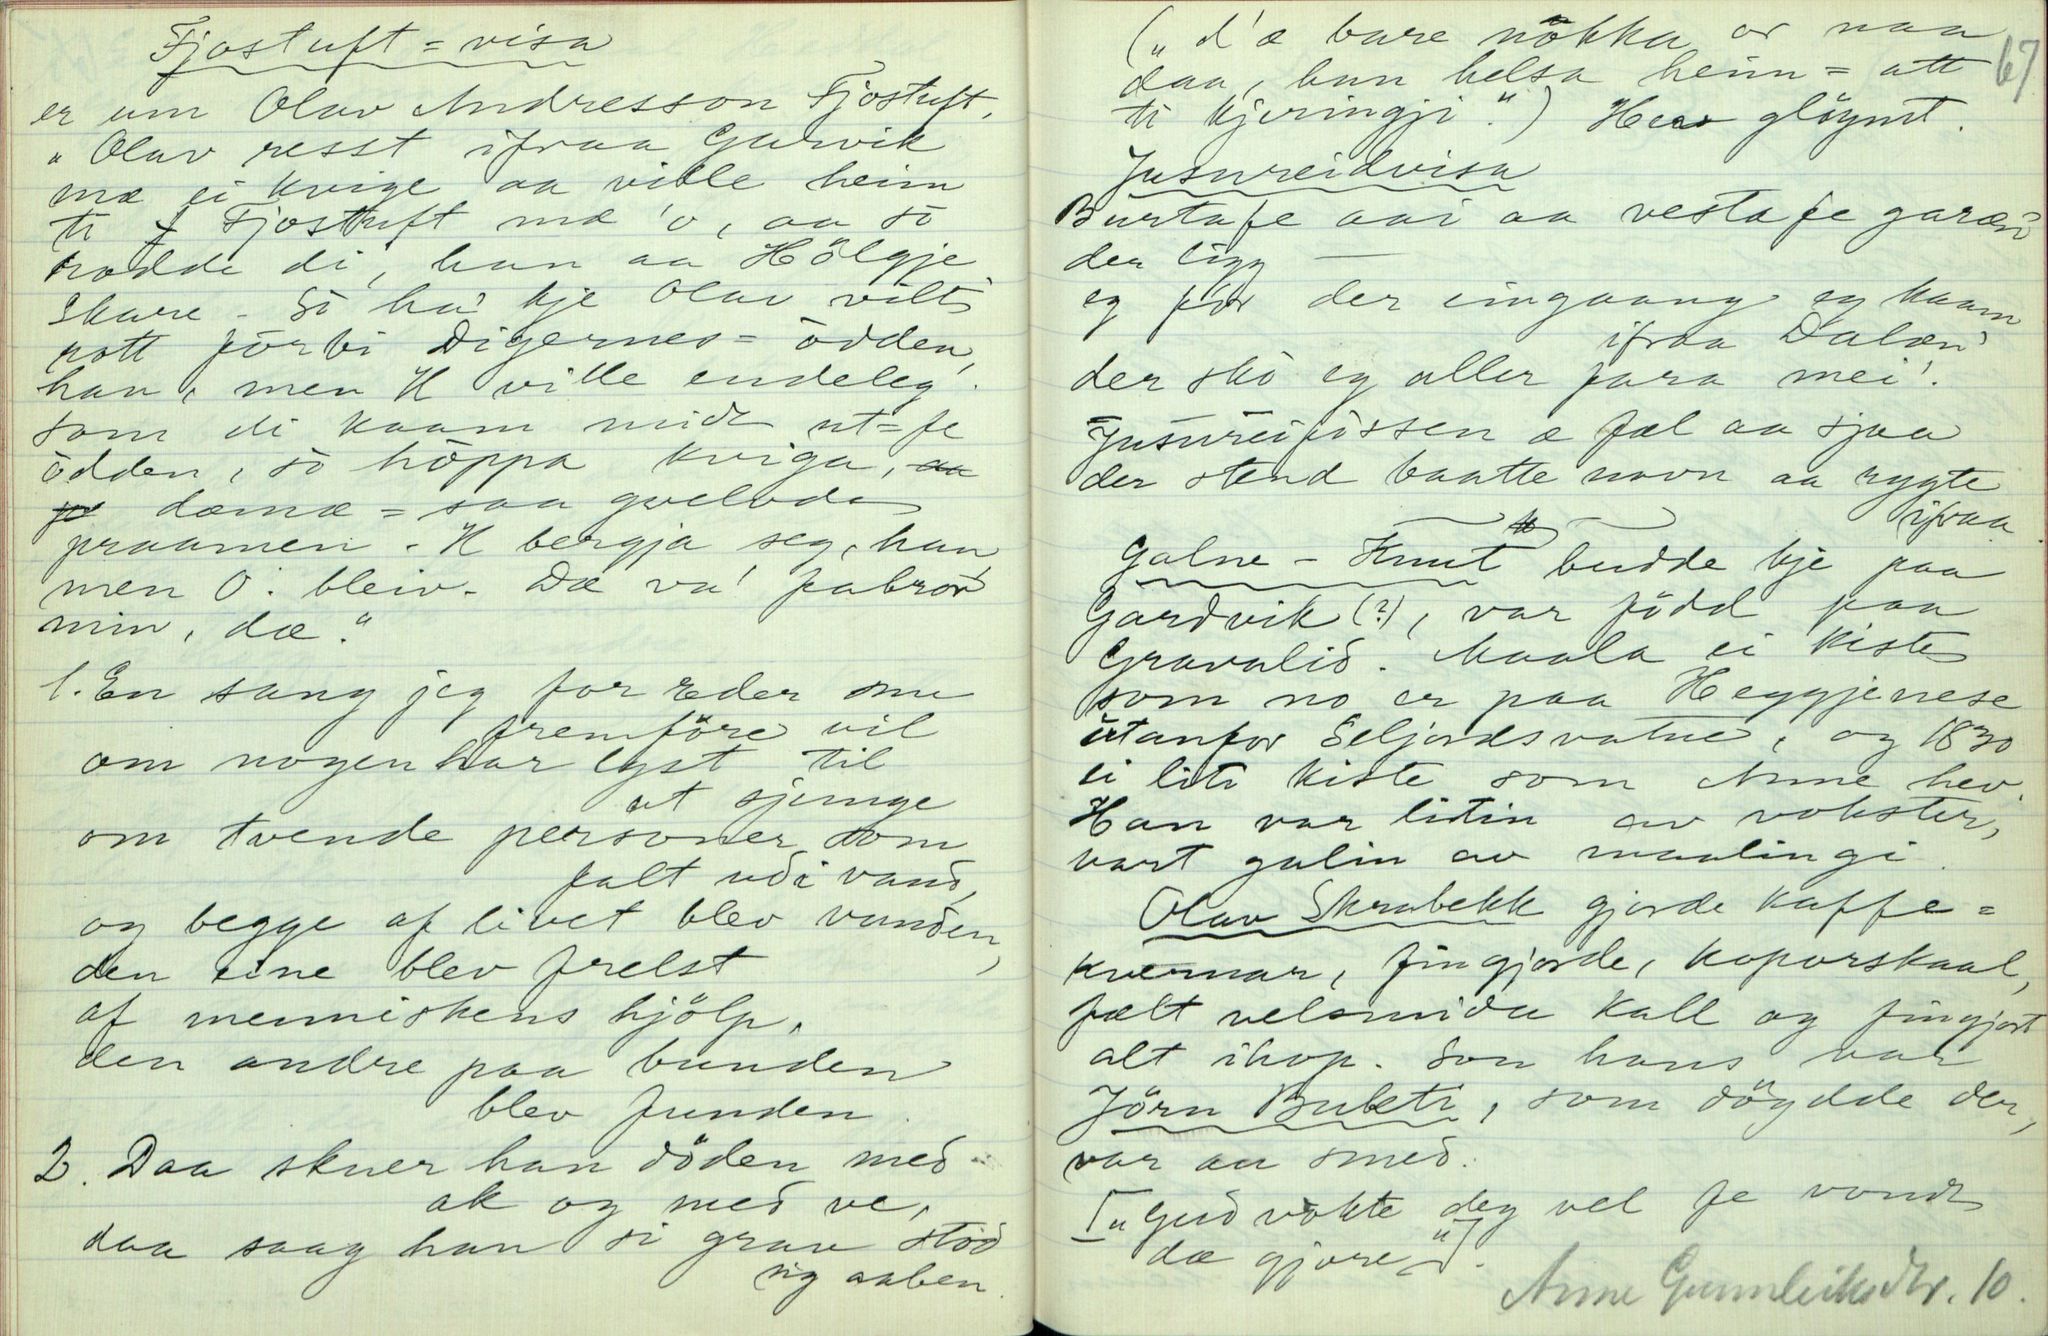 Fjostuft=visa
er um Olav Andresson Fjostuft.
"Olav resst ifraa Garvik
mæ ei kvige aa ville heim
ti Fjostuft mæ 'o, aa so
rodde di, han aa Hölgje
Skare - So ha' kje Olav vilt
rott förbi Digernes=odden,
han, men H ville endeleg.
som di kaam midt ut=fe
odden, so höppa kviga,
dæmæ=saa gvelvde
praamen. H bergja seg, han,
men O. bleiv. Dæ va' fabror
min, dæ."
1. En sang jeg for Eder nu
fremföre vil
om nogen har lyst til
at sjunge
om tvende personer som
falt udi vand,
og begge af livet blev vunden,
den eine blev frelst
af menniskens hjölp,
den andre paa bunden
blev funden.
2. Daa skuer han döden med
ak og med ve,
daa saag han si grav stod
sig aaben.
67
("d'æ bare nokka or naa
daa, han helsa heim=att
ti kjeringji.") Hev glöymt.
Jusureidvisa
Burtafe aai aa vestafe garæn'
der ligg —
eg for der eingaang eg kaam
ifraa Dalæn'
der sko eg aller fara mei'.
Jusureifossen æ fæl aa sjaa
der stend baatte navn aa rygte
ifraa
Galne-Knut budde kje paa
Gardvik (?), var född paa
Gravalid. Maala ei kiste
som no er paa Heggjenese
utanfor Seljordsvatne, og 1830
ei liti kiste som Anne hev.
Han var litin av vokster,
vart galin av maalingi.
Olav Skrabekk gjorde kaffe=
kvernar, fingjorde, koparskaal,
fælt velsmida kall og fingjort
alt ihop. Son hans var
Jörn Bukti, som döydde der,
var au smed.
["Gud vokte deg vel fe vondt
dæ gjore"].
Anne Gunnleiksdtr. 10.